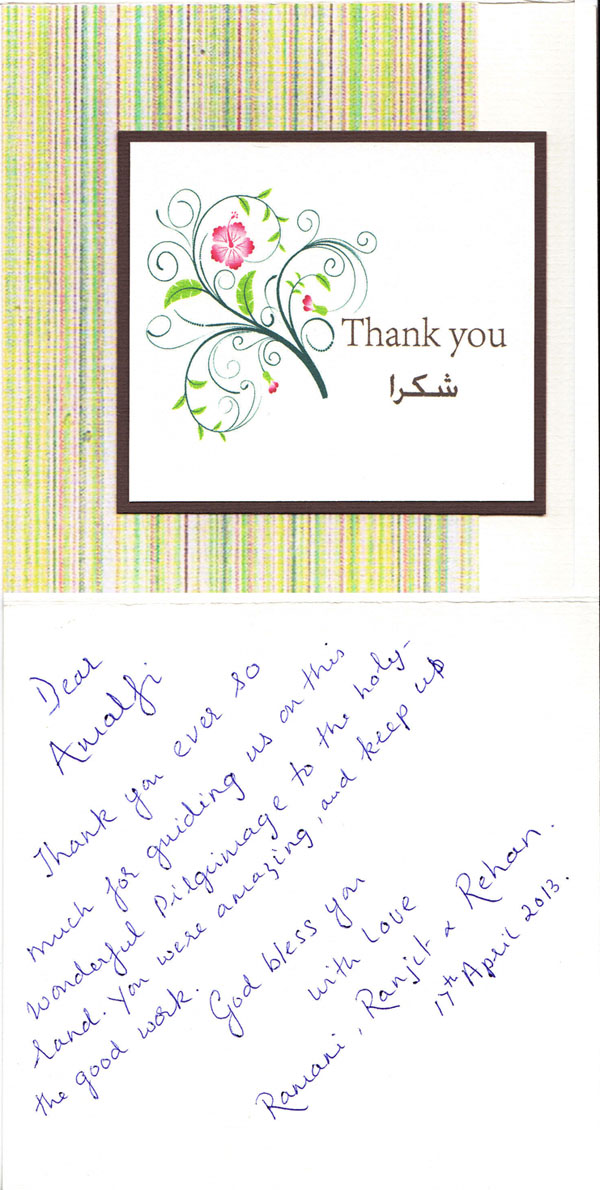 Thank you
شكرا
Dear
Amalfi
Thank you ever so
much for guiding us on this
wonderful Pilgrimage to the holy-
land. You were amazing, and keep up
the good work.
God bless you
with love
Ramani, Ranjit & Rehan.
17th April 2013.